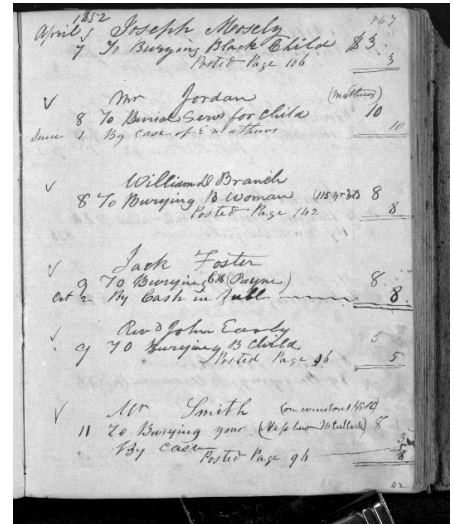 1852 167
April Joseph Mosely
7 To Burying Black Child $3
Posted Page 106 3
Mr Jordan (Mathews)
8 To Burial Serv for Child 10
June 1 By Cash of E Mathews 10
William D Branch
8 To Burying B Woman 8
Posted Page 142 8
Jack Foster
9 To Burying (Payne) 8
Oct 2 By Cash in full 8
Revd John Early 5
9 To Burying B Child
Posted Page 96 5
Mr Smith
11 To Burying your 8
By Cash
Posted Page 96 8
42